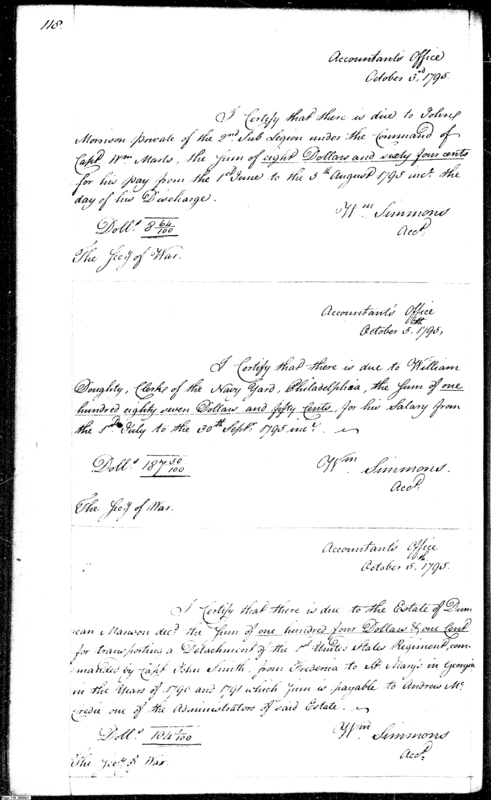 118.
Accountant's Office
October 3.d 1795.
I Certify that there is due to John
Morrison private of the 2nd Sub Legion under the Command of
Capt. Wm Marts, the Sum of eight Dollars and sixty four cents
for his pay from the 1st June to the 5th August 1795 incl. the
day of his Discharge.
Wm Simmons
Acct.
Doll.s 8 64/100
The Secy of War.
Accountant's Office
October 5.th 1795.
I Certify that there is due to William
Doughty, Clerk of the Navy Yard, Philadelphia, the Sum of one
hundred eighty seven Dollars and fifty Cents, for his Salary from
the 1st July to the 30th Sept. 1795 incl.
Wm Simmons.
Acct.
Doll.s 187 50/100
The Secy of War.
Accountant's Office
October 5.th 1795.
I Certify that there is due to the Estate of Dun
can Manson decd. the Sum of one hundred four Dollars & one Cent
for transporting a Detachment of the 1st United States Regiment, com
manded by Capt John Smith, from Frederica to St. Marys in Georgia
in the Years of 1790 and 1791 which Sum is payable to Andrew Mc
Credie one of the Administrators of said Estate.
Wm Simmons
Acct.
Doll.s 104 1/100
The Secy of War.